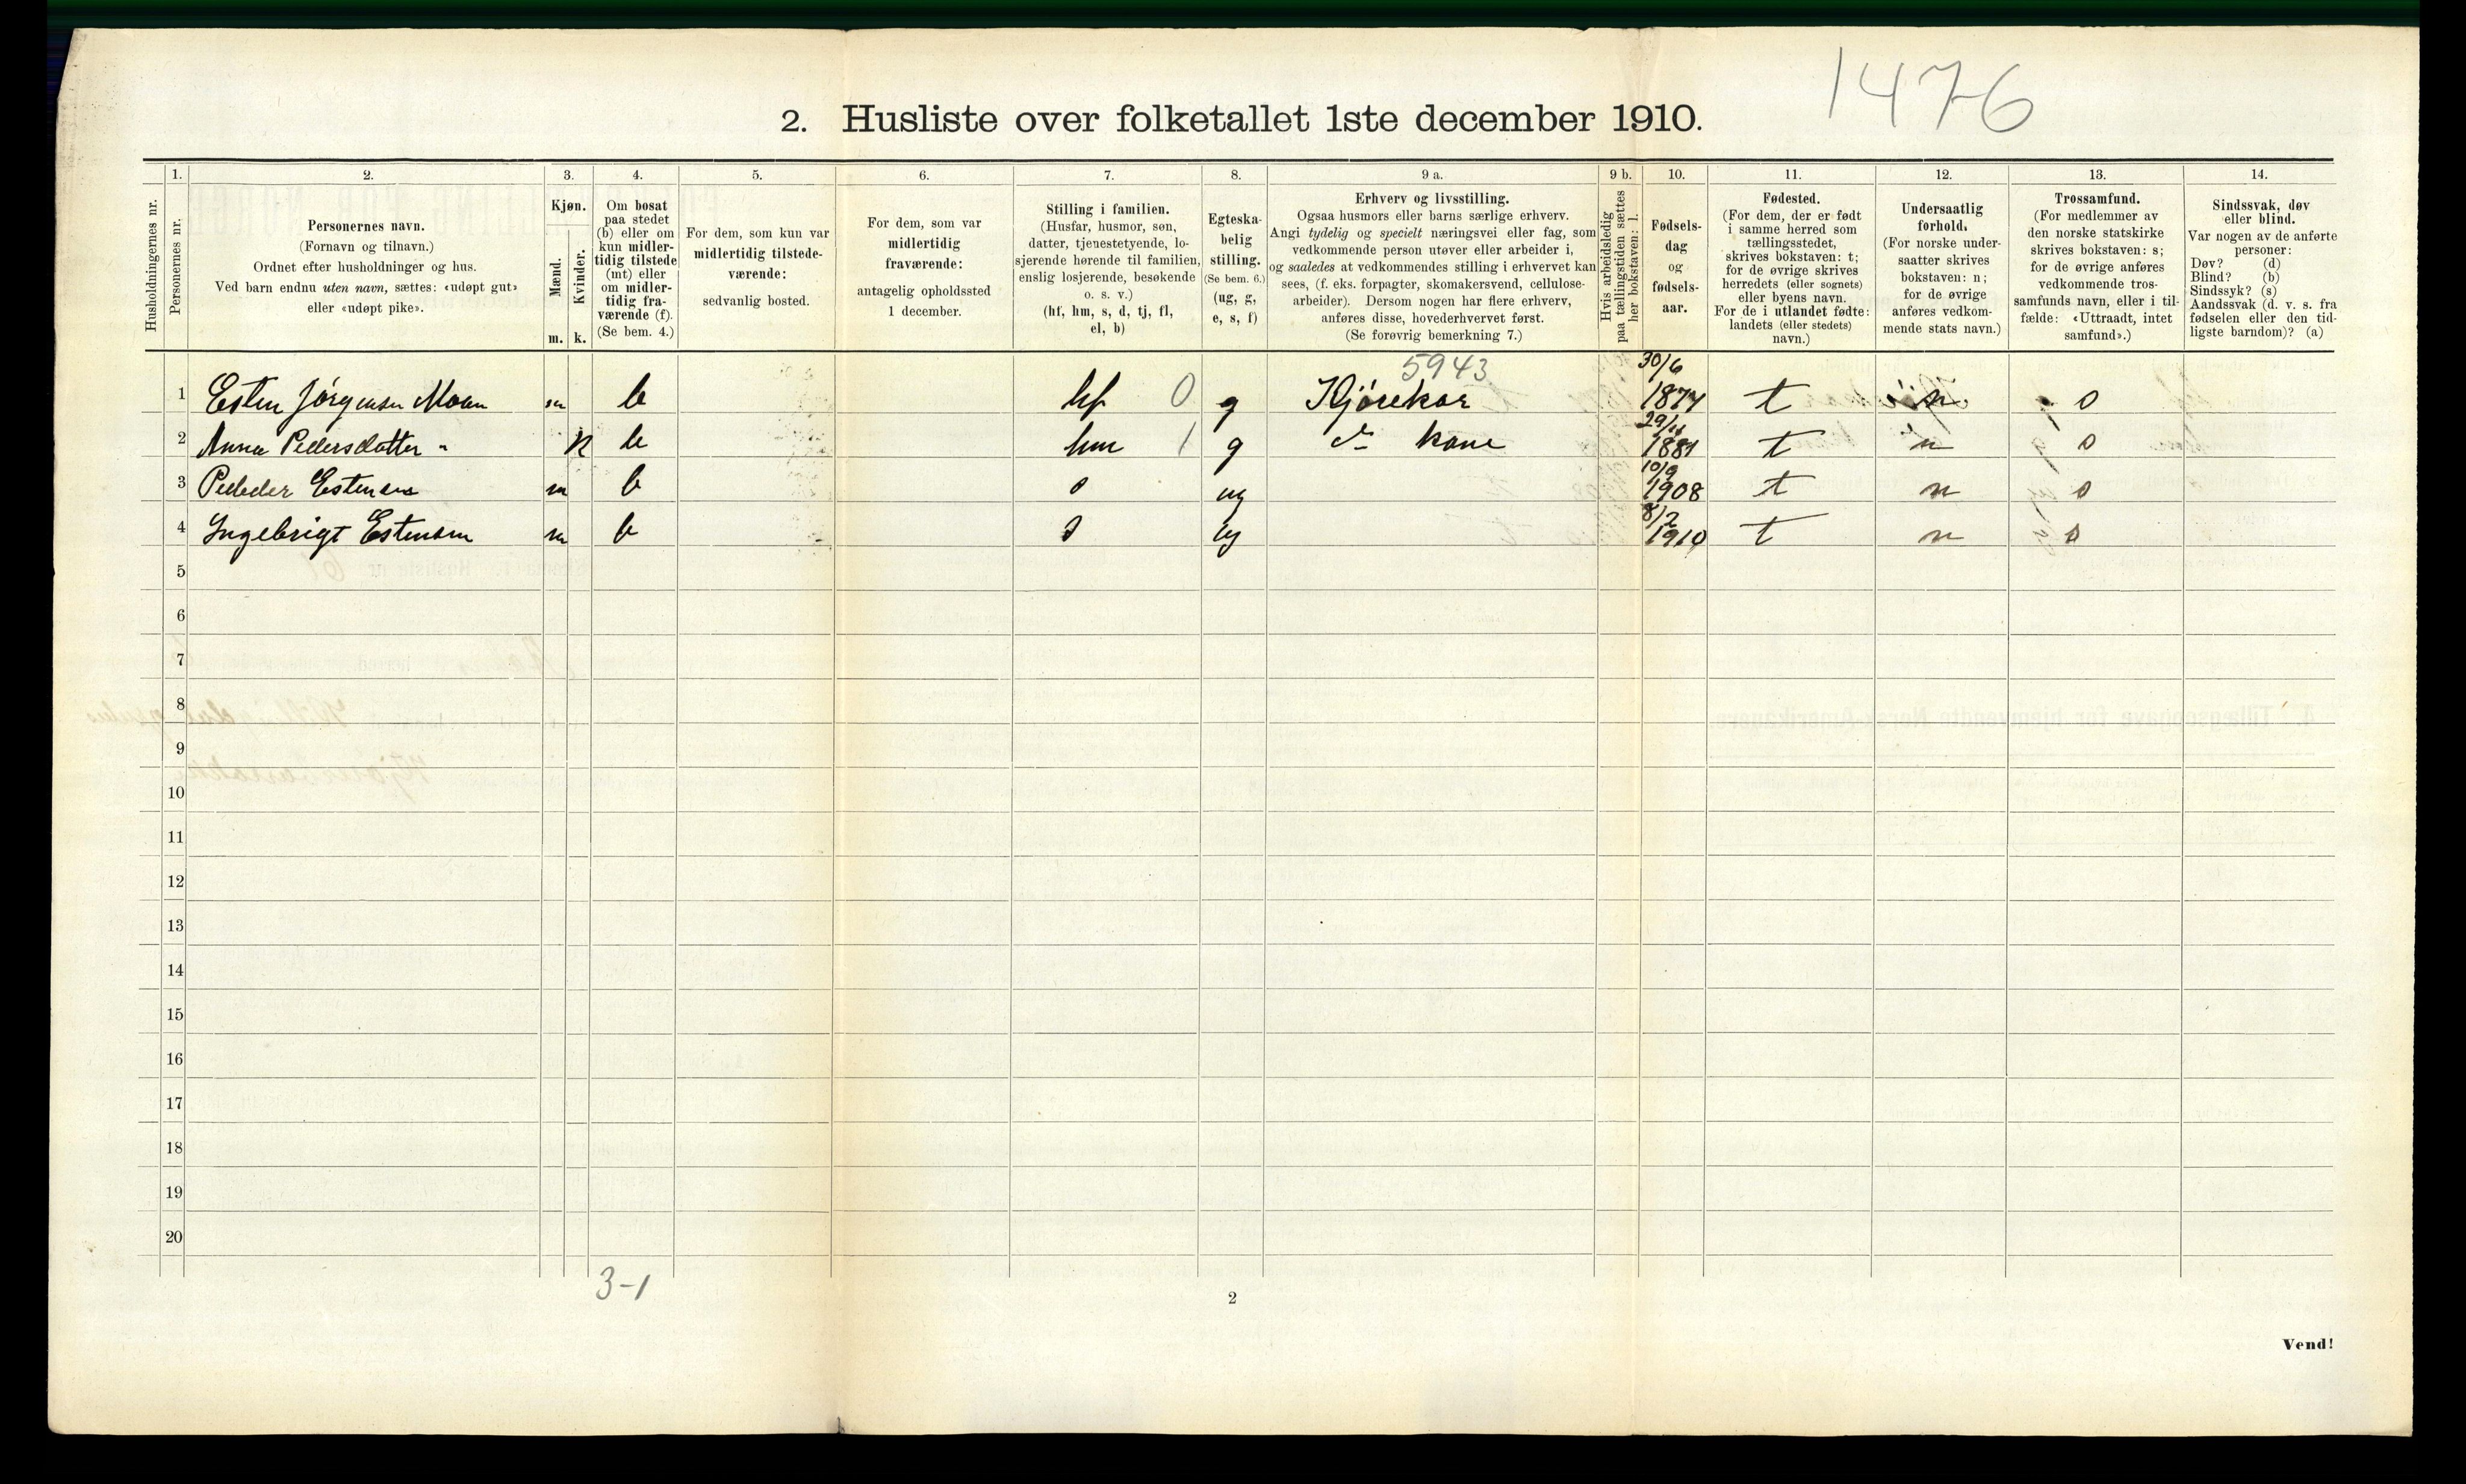 1476
2. Husliste over folketallet 1ste december 1910.
Husholdningernes nr.
1. Personernes nr.
2. Personernes navn.
(Fornavn og tilnavn.)
Ordnet efter husholdninger og hus.
Ved barn endnu uten navn, sættes: «udøpt gut»
eller «udøpt pike».
3. Kjøn.
Mænd. Kvinder.
m. k.
4. Om bosat
paa stedet
(b) eller om
kun midler-
tidig tilstede
(mt) eller
om midler-
tidig fra-
værende (f).
(Se bem. 4.)
5. For dem, som kun var
midlertidig tilstede-
værende:
sedvanlig bosted.
6. For dem, som var
midlertidig
fraværende:
antagelig opholdssted
1 december.
7. Stilling i familien.
(Husfar, husmor, søn,
datter, tjenestetyende, lo-
sjerende hørende til familien,
enslig losjerende, besøkende
o. s. v.)
(hf, hm, s, d, tj, fl,
el, b)
8. Egteska-
belig
stilling.
(Se bem. 6.)
(ug, g,
e, s, f)
9 a. Erhverv og livsstilling.
Ogsaa husmors eller barns særlige erhverv.
Angi tydelig og specielt næringsvei eller fag, som
vedkommende person utøver eller arbeider i,
og saaledes at vedkommendes stilling i erhvervet kan
sees, (f. eks. forpagter, skomakersvend, cellulose-
arbeider). Dersom nogen har flere erhverv,
anføres disse, hovederhvervet først.
(Se forøvrig bemerkning 7.)
9 b. Hvis arbeidsledig
paa tællingstiden sættes
her bokstaven: l.
10. Fødsels-
dag
og
fødsels-
aar.
11. Fødested.
(For dem, der er født
i samme herred som
tællingsstedet,
skrives bokstaven: t;
for de øvrige skrives
herredets (eller sognets)
eller byens navn.
For de i utlandet fødte:
landets (eller stedets)
navn.)
12. Undersaatlig
forhold.
(For norske under-
saatter skrives
bokstaven: n;
for de øvrige
anføres vedkom-
mende stats navn.)
13. Trossamfund.
(For medlemmer av
den norske statskirke
skrives bokstaven: s;
for de øvrige anføres
vedkommende tros-
samfunds navn, eller i til-
fælde: «Uttraadt, intet
samfund».)
14. Sindssvak, døv
eller blind.
Var nogen av de anførte
personer:
Døv? (d)
Blind? (b)
Sindssyk? (s)
Aandssvak (d. v. s. fra
fødselen eller den tid-
ligste barndom)? (a)
5943 30/6
1 Esten Jørgensen Moan m b hf 0 g Kjørekar 1877 t n s
29/11
2 Anna Pedersdatter " k b hm 1 g do kone 1881 t n s
10/9
3 Pededer Estensen m b s ug 1908 t n s
8/2
4 Ingebrigt Estensen m b s ug 1910 t n s
5
6
7
8
9
10
11
12
13
14
15
16
17
18
19
20
3-1
2
Vend!